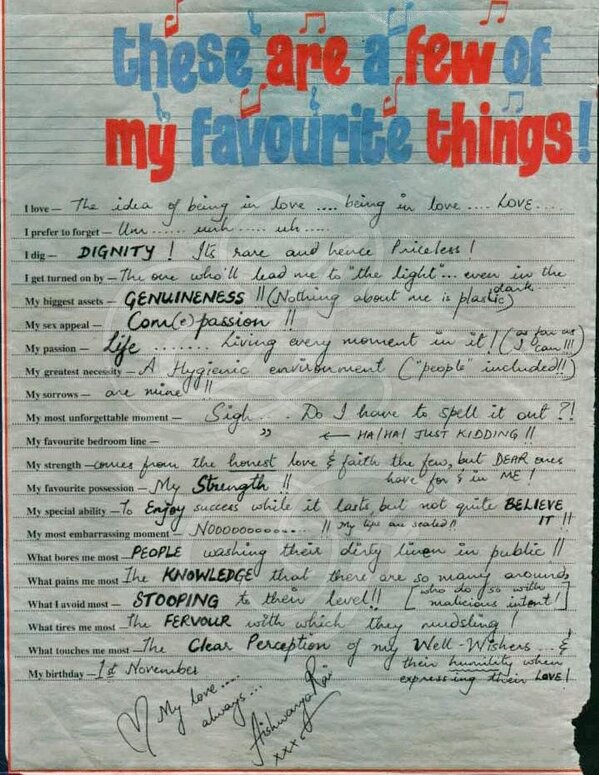 these are a few of
my favourite things!
I love — The idea of being in love .... being in love .... LOVE....
I prefer to forget — Um ...... umh ..... uh .....
I dig — DIGNITY! Its rare and hence Priceless!
I get turned on by — The one who'll lead me to "the light"... even in the dark...
My biggest assets — GENUINENESS!! (Nothing about me is plastic)
My sex appeal — Com(e)passion!!
My passion — Life ........ Living every moment in it! (as far as I can!!!)
My greatest necessity — A Hygienic environment ("people" included!!)
My sorrows — are mine!!
My most unforgettable moment — Sigh .... Do I have to spell it out?!
My favourite bedroom line — " ← HA!HA! JUST KIDDING!!
My strength — comes from the honest love & faith the few, but DEAR ones have for & in ME!
My favourite possession — My Strength!!
My special ability — To Enjoy success while it lasts, but not quite BELIEVE IT!!
My most embarrassing moment — NOOOOOOOOO....!! My lips are sealed!!
What bores me most — PEOPLE washing their dirty linen in public!!
What pains me most — The KNOWLEDGE that there are so many around, [who do so with malicious intent!]
What I avoid most — STOOPING to their level!!
What tires me most — The FERVOUR with which they mudsling!
What touches me most — The Clear Perception of my Well-Wishers ... & their humility when expressing their LOVE!
My birthday — 1st November
My love.....
always...
Aishwarya Rai
xxx